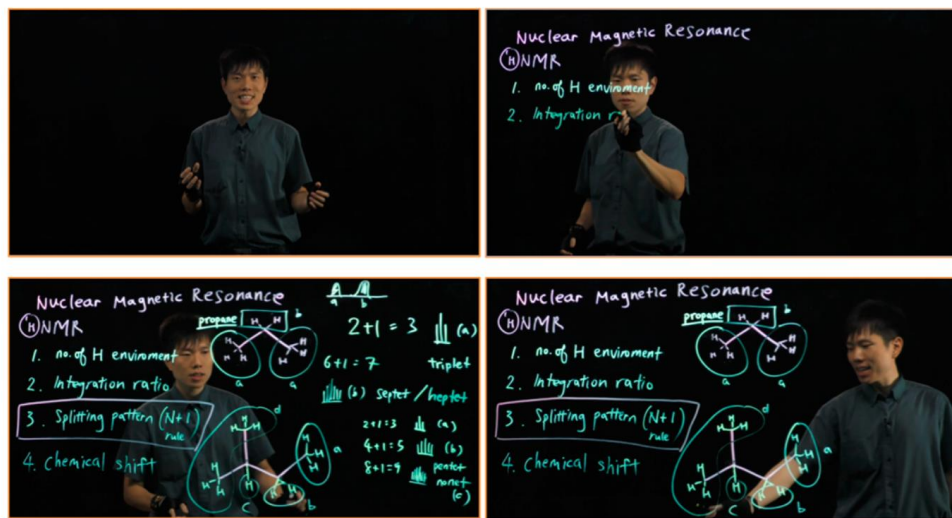 Nuclear Magnetic Resonance
¹H NMR
1. no. of H enviroment
2. Integration
Nuclear Magnetic Resonance
¹H NMR
1. no. of H enviroment
2. Integration ratio
3. Splitting pattern (N+1)
rule
4. Chemical shift
propane
H H
b
H H
H H
H H
a a
a b
2+1=3 (a)
6+1=7 triplet
(b) septet / heptet
2+1=3 (a)
4+1=5 (b)
8+1=9 pentet
nonet
(c)
d
H
H H
H
H
H
H
H
H
H
H H
a
b
c
Nuclear Magnetic Resonance
¹H NMR
1. no. of H enviroment
2. Integration ratio
3. Splitting pattern (N+1)
rule
4. Chemical shift
propane
H H
b
H H
H H
H H
a a
d
H
H H
H
H
H
H
H
H
H
a
b
c